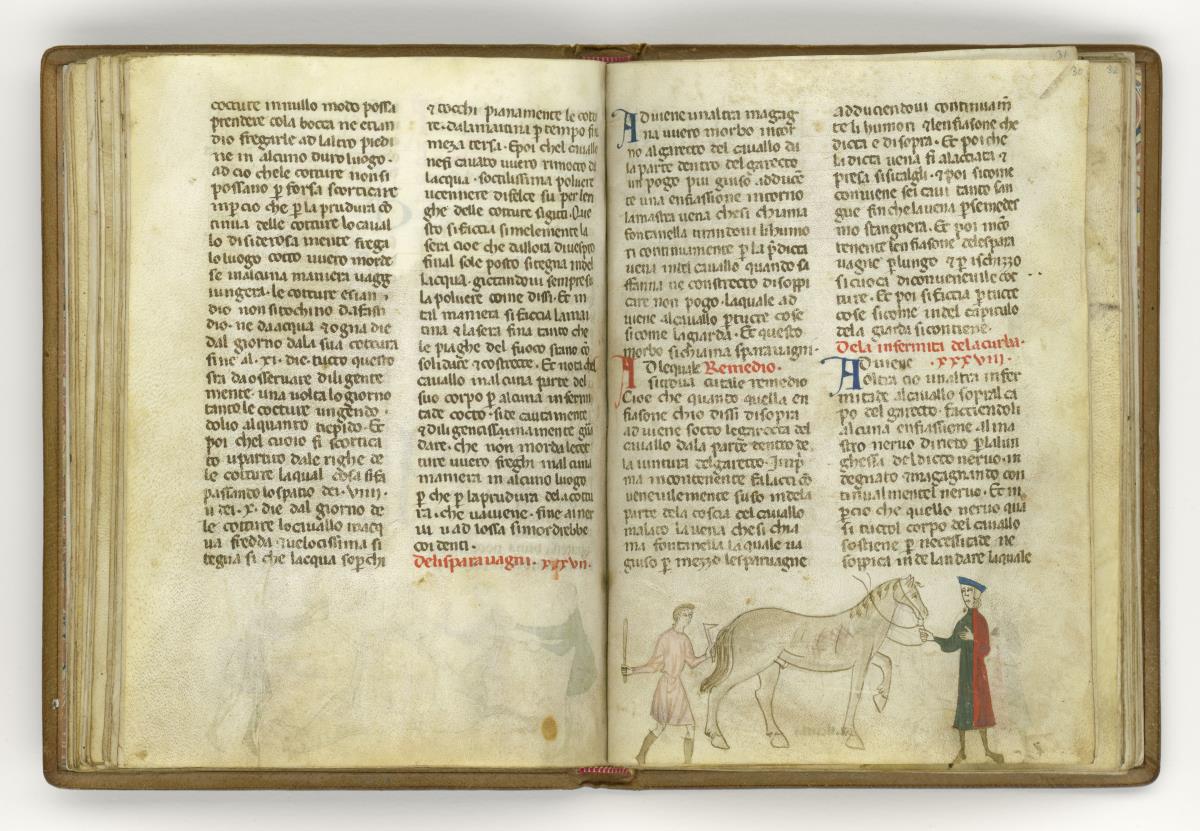 cocture innullo modo possa
prendere cola bocca ne etian
dio fregarle ad laltro piedi
ne in alcuno duro luogo ·
ad cio chele cocture non si
possano p forsa scorticare
impcio che p la prudura co
tinua delle cocture lo caual
lo disiderosa mente frega
lo luogo cocto uuero morde
se inalcuna maniera uagg
iungera · le cocture etian
dio non si tochino da fasti
dio · ne da acqua & ogna die
dal giorno dala sua coctura
fine al · xi · die · tucto questo
sia da osseruare diligente
mente · una uolta lo giorno
tanto le cocture ungendo ·
dolio alquanto tiepido · Et
poi chel cuoio si scortica
to upartito dale righe de
le cocture la qual cosa si fa
passanto lo spatio dei · viiii ·
u dei · x · die dal giorno de
le cocture lo cauallo inacq
ua fredda & uelocissima si
tegna si che lacqua soprchi
& tocchi pianamente le coctu
re · dala matina p tempo fin
meza tersa · Epoi chel cauallo
nesi cauato uuero rimoto di
lacqua · soctilissima poluere
ucennere di felce su per len
ghe delle cocture si gicti · Que
sto si faccia simelemente la
sera cioe che dallora di uespro
final sole posto si tegna indel
lacqua · gictandoui sempre su
la poluere come dissi · Et in
tal maniera si faccia la mai
tina & la sera fina tanto che
le piaghe del fuoco siano co
solidate & costrecte · Et nota chel
cauallo inalcuna parte del
suo corpo p alcuna infermi
tade cocto · side cautamente
& diligentissimamente gua
dare · che non morda lecoc
ture uuero freghi inalcuna
maniera in alcuno luogo
p che p la prudura dela coctu
ra · che uauuene · fine ai ner
ui u ad lossa si mordirebbe
coi denti ·
Deli sparauagni · xxxvii ·
31
30
32
Aduiene unaltra magag
na uuero morbo intor
no al garecto del cauallo di
la parte dentro del garecto
un pogo piu giuso adduce
te una enfiassione intorno
la mastra uena che si chiama
fontanella tirandoui li humo
ri continuamente p la pdicta
uena indel cauallo quando sa
ffanna ne constrecto di soppi
care non pogo · laquale ad
uiene al cauallo p tucte cose
sicome la giarda · Et questo
morbo si chiama sparauagni ·
Ad lequale Remedio ·
si troua cutale remedio
Cioe che quando quella en
fiasone chio dissi di sopra
ad uiene socto le garecta del
cauallo dala parte dentro de
la iuntura del garetto · Imp
ma incontenente falacci co
ueneuilemente suso indela
parte dela coscia del cauallo
malato la uena che si chia
ma fontanella la quale ua
giuso p mezzo lesparuagne
adduciendoui continuam
te li humori & lenfiasone che
dicta e disopra · Et poi che
la dicta uena si alacciata &
presa sisi talghi · & poi sicome
conuene sei caui tanto san
gue fin che la uena p se meder
mo stangnera · Et poi inco
tenente lenfiasone & lespara
uagne plungo & p ischizzo
si cuoci di conueneuile coc
ture · Et poi si faccia p tucte
cose sicome indel capitulo
dela giarda si contiene ·
Dela infermita dela curba ·
Aduiene · xxxviii ·
oltra cio unaltra infer
mitade al cauallo sopral ca
po del garecto · facciendoli
alcuna enfiassione al ma
stro neruo dirieto p la lun
ghessa del dicto neruo · in
degnato & magagnando con
tinualmentel neruo · Et in
pcio che quello neruo qua
si tuctol corpo del cauallo
sostiene p necessitade ne
soppica in de landare laquale